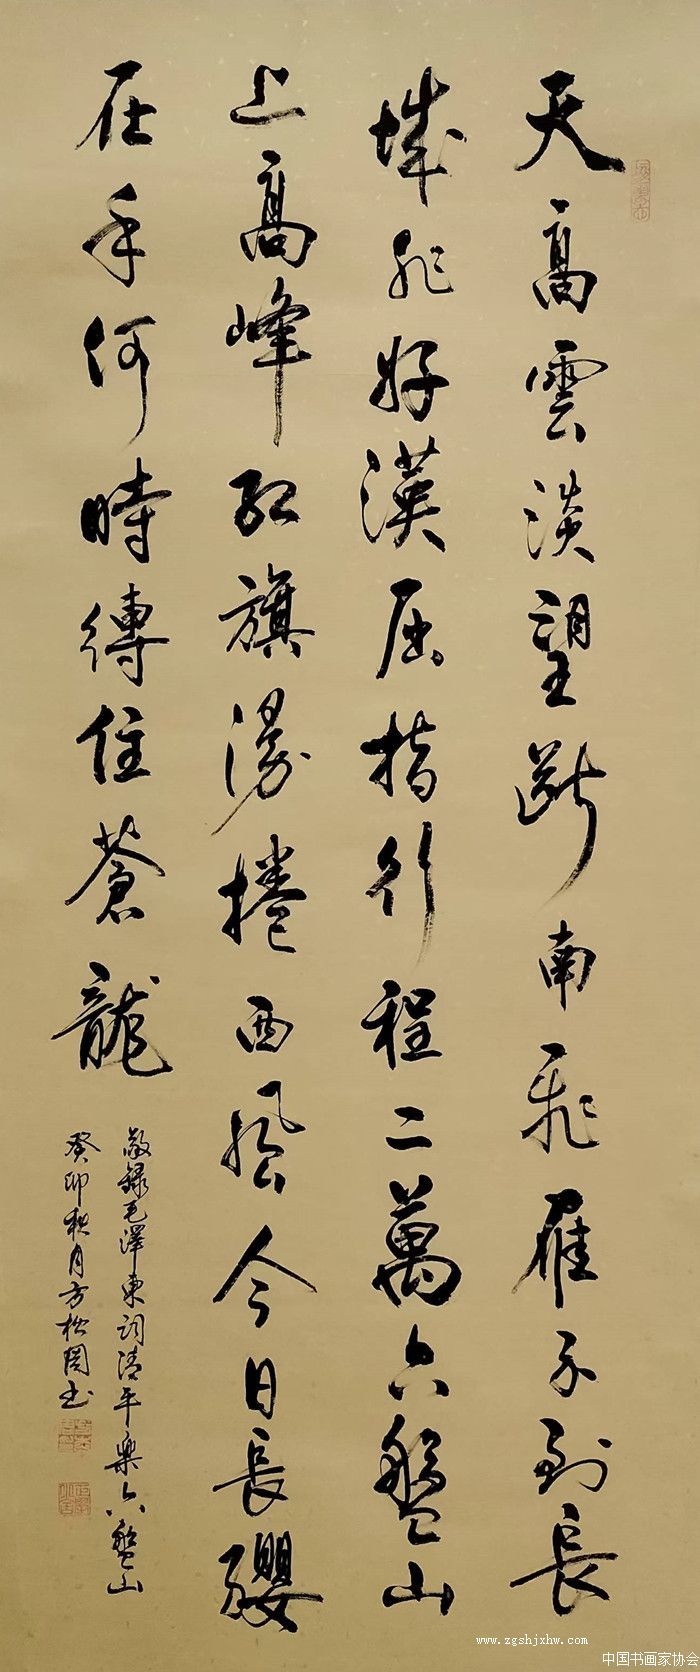 天高雲淡望斷南飛雁不到長
城非好漢屈指行程二萬六盤山
上高峰紅旗漫捲西風今日長纓
在手何時縛住蒼龍
敬錄毛澤東詞清平樂六盤山
癸卯秋月方松閣书
www.zgshjxhw.com
中国书画家协会